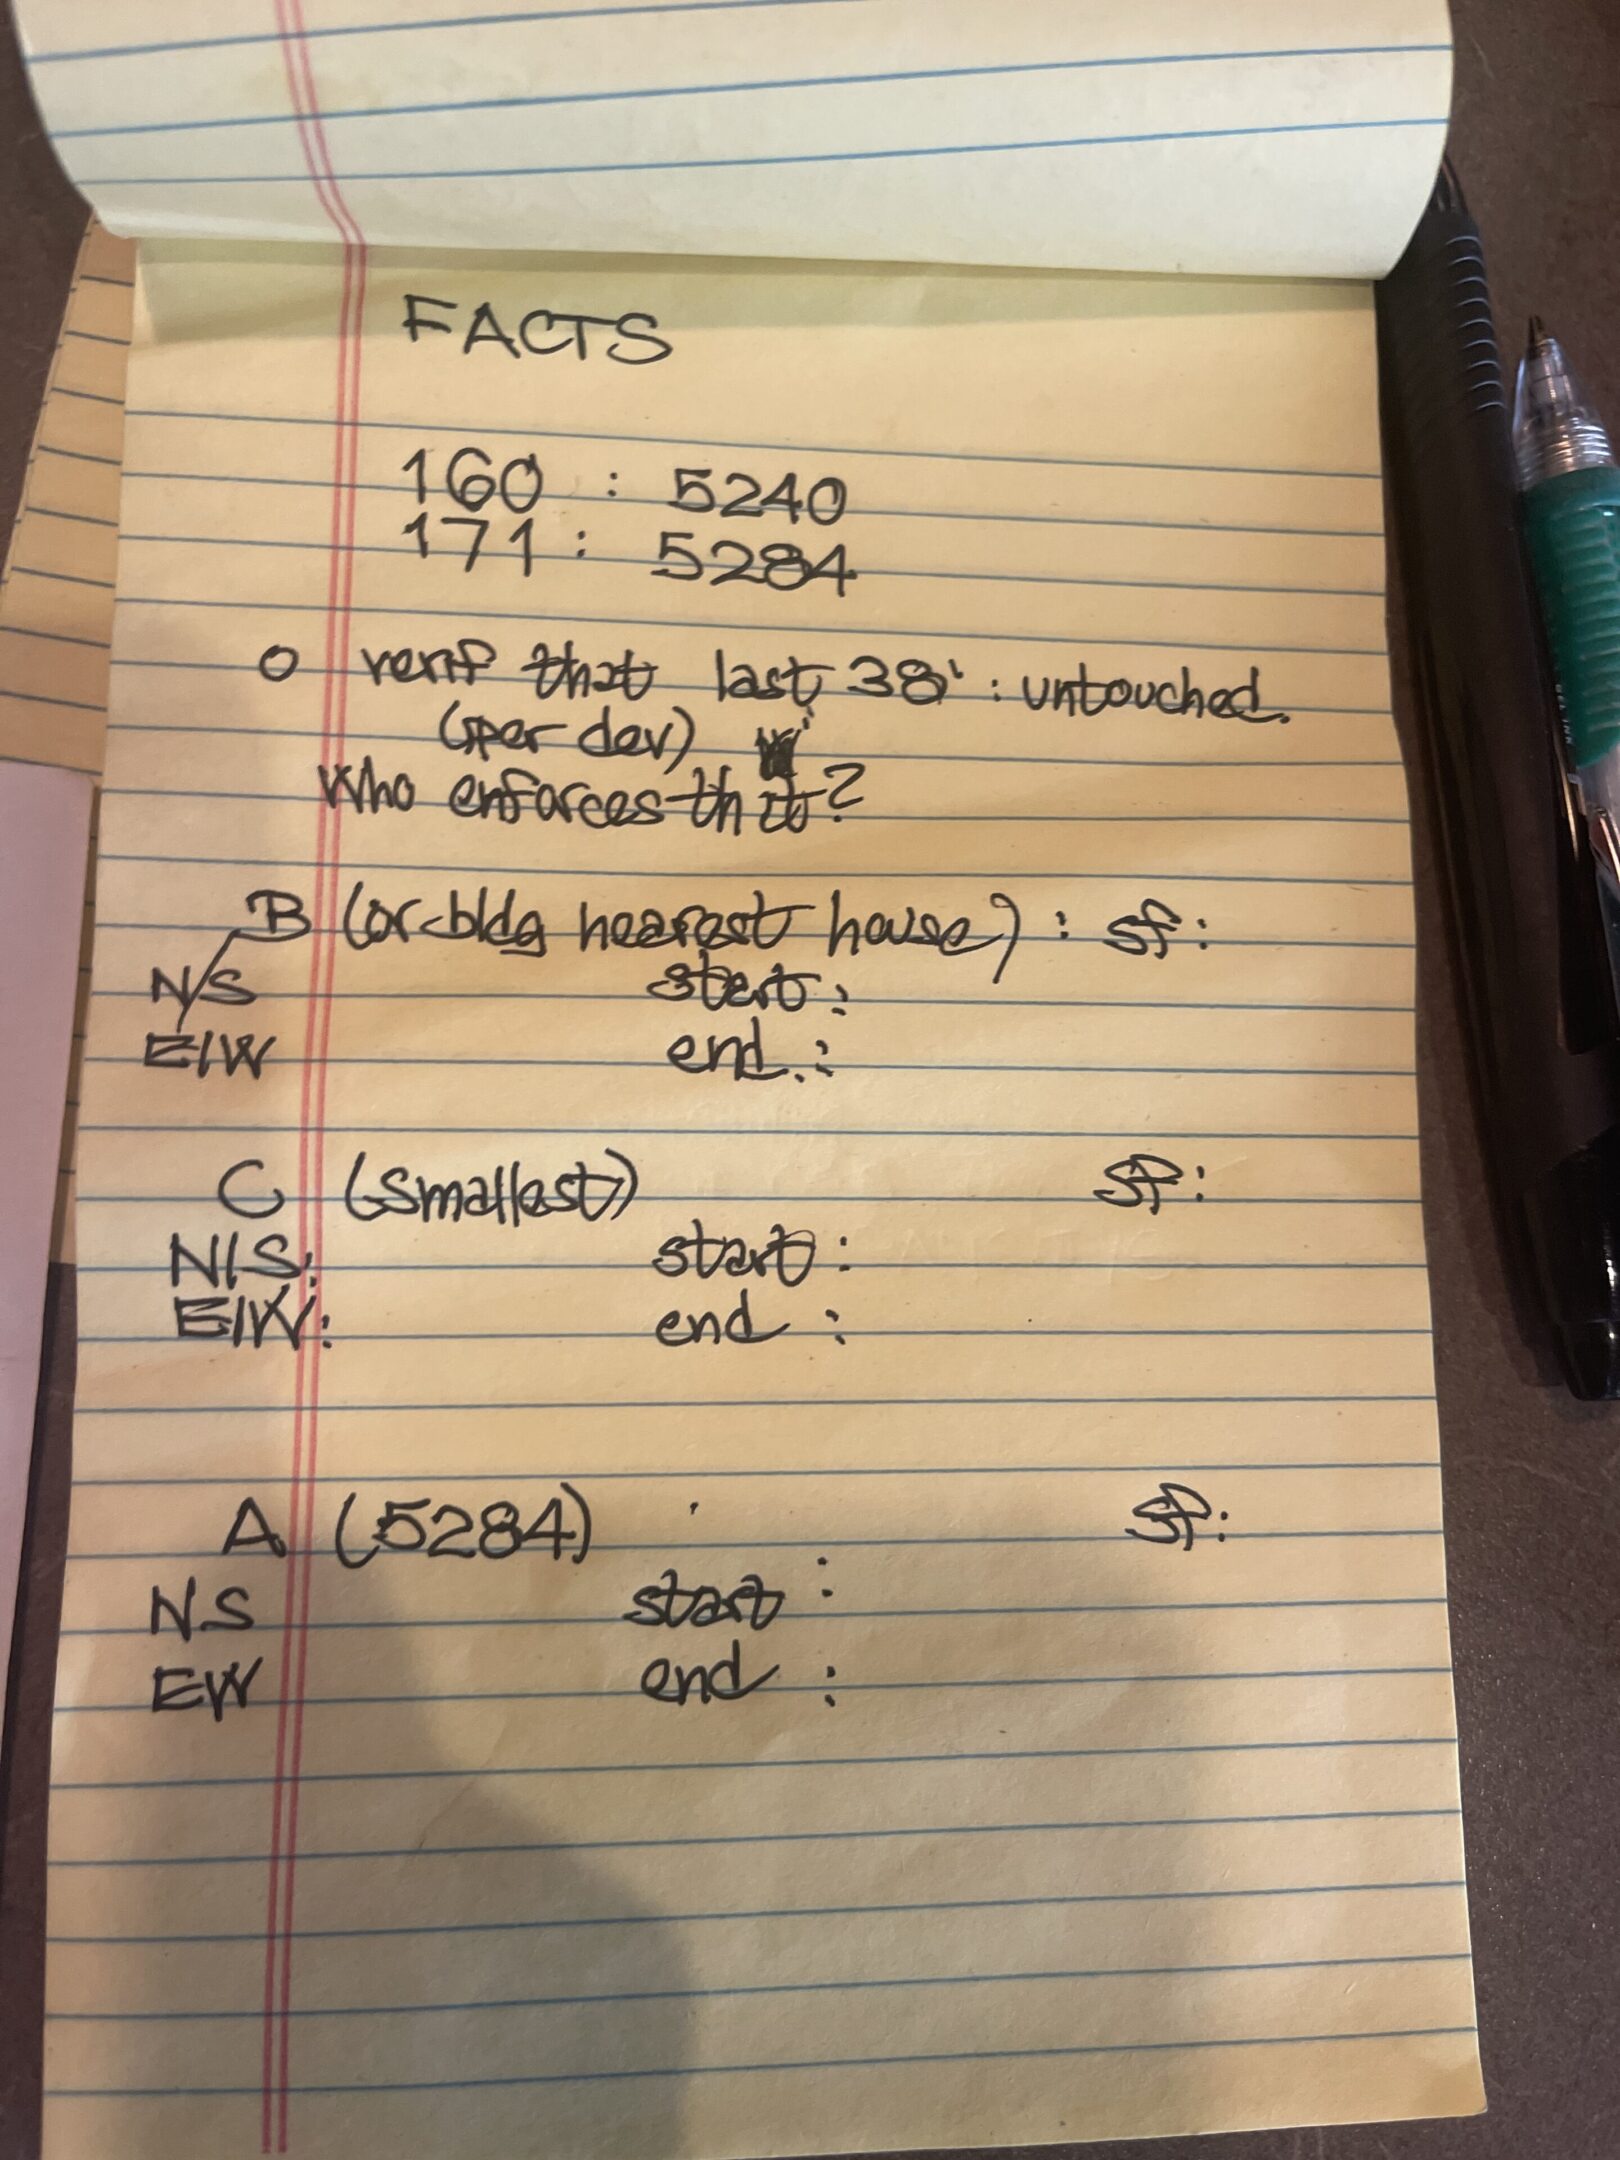 FACTS
160 : 5240
171 : 5284
o verif that last 38' : untouched.
(per dev)
Who enforces that?
B (or bldg nearest house) : sf:
N/S start:
E/W end.:
C (smallest) sf:
N/S: start:
E/W: end :
A (5284) sf:
NS start :
EW end :